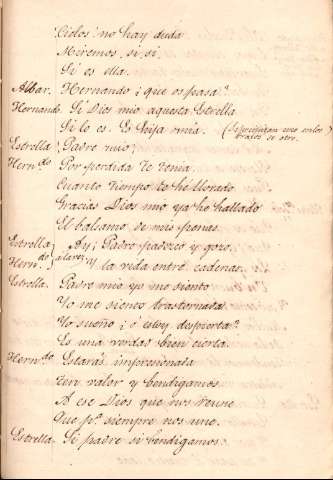 Cielos no hay duda
Miremos, si si
Si es ella.
Albar. Hernando ¿que os pasa?
Hernando Si Dios mio aquesta Estrella
Si lo es. Es hija mia. (Se precipitan uno en los brazos de otro.)
Estrella Padre mio
Hern.do Por perdida te tenia
Cuanto tiempo te he llorado
Gracias Dios mio ya he hallado
El balsamo de mis penas
Estrella Ay; Padre padezco y gozo.
Hern.do y la vida entre cadenas.
Estrella. Padre mio yo me siento
Yo me siento trastornada
Yo sueño ¿ó estoy despierta?
Es una verdad bien cierta.
Hern.do Estarás impresionada
ten valor y bendigamos
A ese Dios que nos reune
Que p.a siempre nos une.
Estrella Si padre si bendigamos